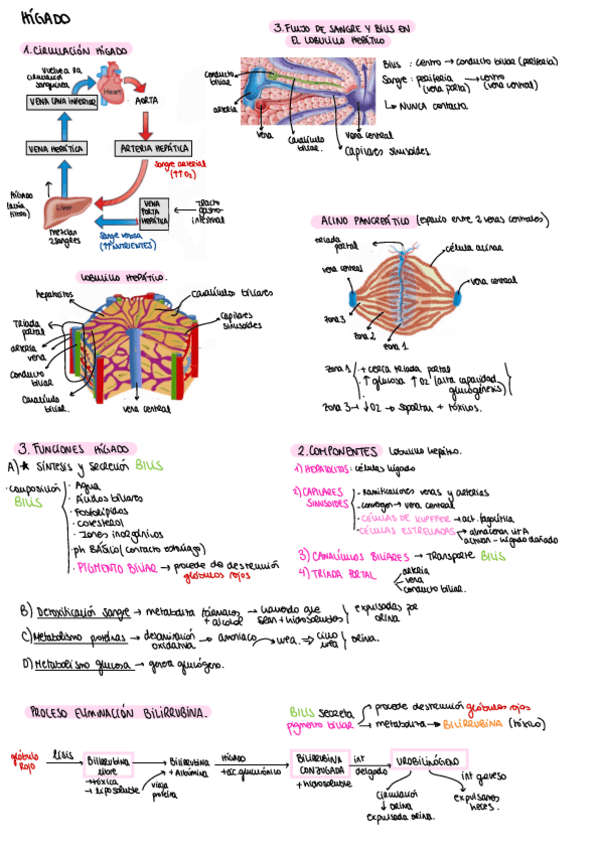 HÍGADO
1. CIRCULACIÓN HÍGADO
vuelve a la
circulación
sanguínea
Heart
VENA CAVA INFERIOR
AORTA
VENA HEPÁTICA
ARTERIA HEPÁTICA
sangre arterial
(↑↑O2)
HÍGADO
Liver
mezclan
2 sangres
VENA
PORTA
HEPÁTICA
TRACTO
gastro-
intestinal
sangre venosa
(↑↑NUTRIENTES)
3. FLUJO DE SANGRE Y BILIS EN
EL LOBULILLO HEPÁTICO
conducto
biliar
arteria
vena
canalículo
biliar.
vena central
capilares sinusoides.
Bilis : centro → conducto biliar (periferia)
Sangre : periferia (vena porta) → centro (vena central)
↳ NUNCA contacta.
LOBULILLO HEPÁTICO.
hepatocitos
canalículos biliares
capilares
sinusoides
Tríada
portal
arteria
vena
conducto
biliar
canalículo
biliar.
vena central
ACINO PANCREÁTICO (espacio entre 2 venas centrales)
tríada
portal
célula acinar
vena central
vena central
zona 3
zona 2
zona 1
zona 1 · + cerca tríada portal
· ↑ glucosa ↑ O2 (alta capacidad
glucogénesis)
zona 3 → ↓O2 → soportan + tóxicos.
3. FUNCIONES HÍGADO
A) ★ SÍNTESIS y SECRECIÓN BILIS
· composición
BILIS
· Agua
· Ácidos biliares
· Fosfolípidos
· colesterol
· Iones inorgánicos
· pH BÁSICO (contacto estómago)
· PIGMENTO BILIAR → procede de destrucción
glóbulos rojos
2. COMPONENTES Lobulillo hepático.
1) HEPATOCITOS: células hígado
2) CAPILARES
SINUSOIDES
- Ramificaciones venas y arterias
- convergen → vena central
- CÉLULAS DE KUPFFER → act. fagocítica
- CÉLULAS ESTRELLADAS → almacenar vit A
activan - hígado dañado
3) CANALÍCULOS BILIARES → TRANSPORTE BILIS
4) TRÍADA PORTAL
arteria
vena
conducto biliar.
B) Detoxificación sangre → metaboliza fármacos + alcohol → haciendo que sean + hidrosolubles } expulsadas por orina
C) Metabolismo proteínas → desaminación oxidativa → amoníaco → urea. ⇒ ciclo urea } orina.
D) Metabolismo glucosa → genera glucógeno.
PROCESO ELIMINACIÓN BILIRRUBINA.
BILIS secreta
pigmento biliar
procede destrucción glóbulos rojos
metaboliza → BILIRRUBINA (tóxico)
glóbulo
ROJO
LISIS
Bilirrubina
libre
→ tóxica
→ liposoluble
Bilirrubina
+ Albúmina
viaja
proteína
HÍGADO
+ ác. glucurónico
BILIRRUBINA
CONJUGADA
+ hidrosoluble
int
delgado
UROBILINÓGENO
circulación
↓ orina
expulsada orina.
int grueso
expulsarnos
heces.